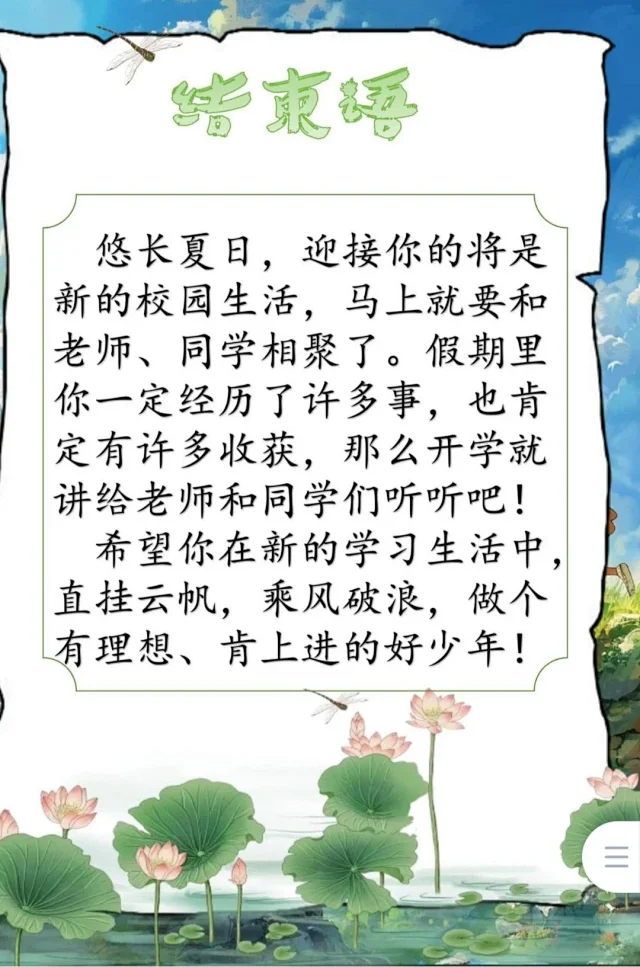 结束语
悠长夏日，迎接你的将是
新的校园生活，马上就要和
老师、同学相聚了。假期里
你一定经历了许多事，也肯
定有许多收获，那么开学就
讲给老师和同学们听听吧！
希望你在新的学习生活中，
直挂云帆，乘风破浪，做个
有理想、肯上进的好少年！